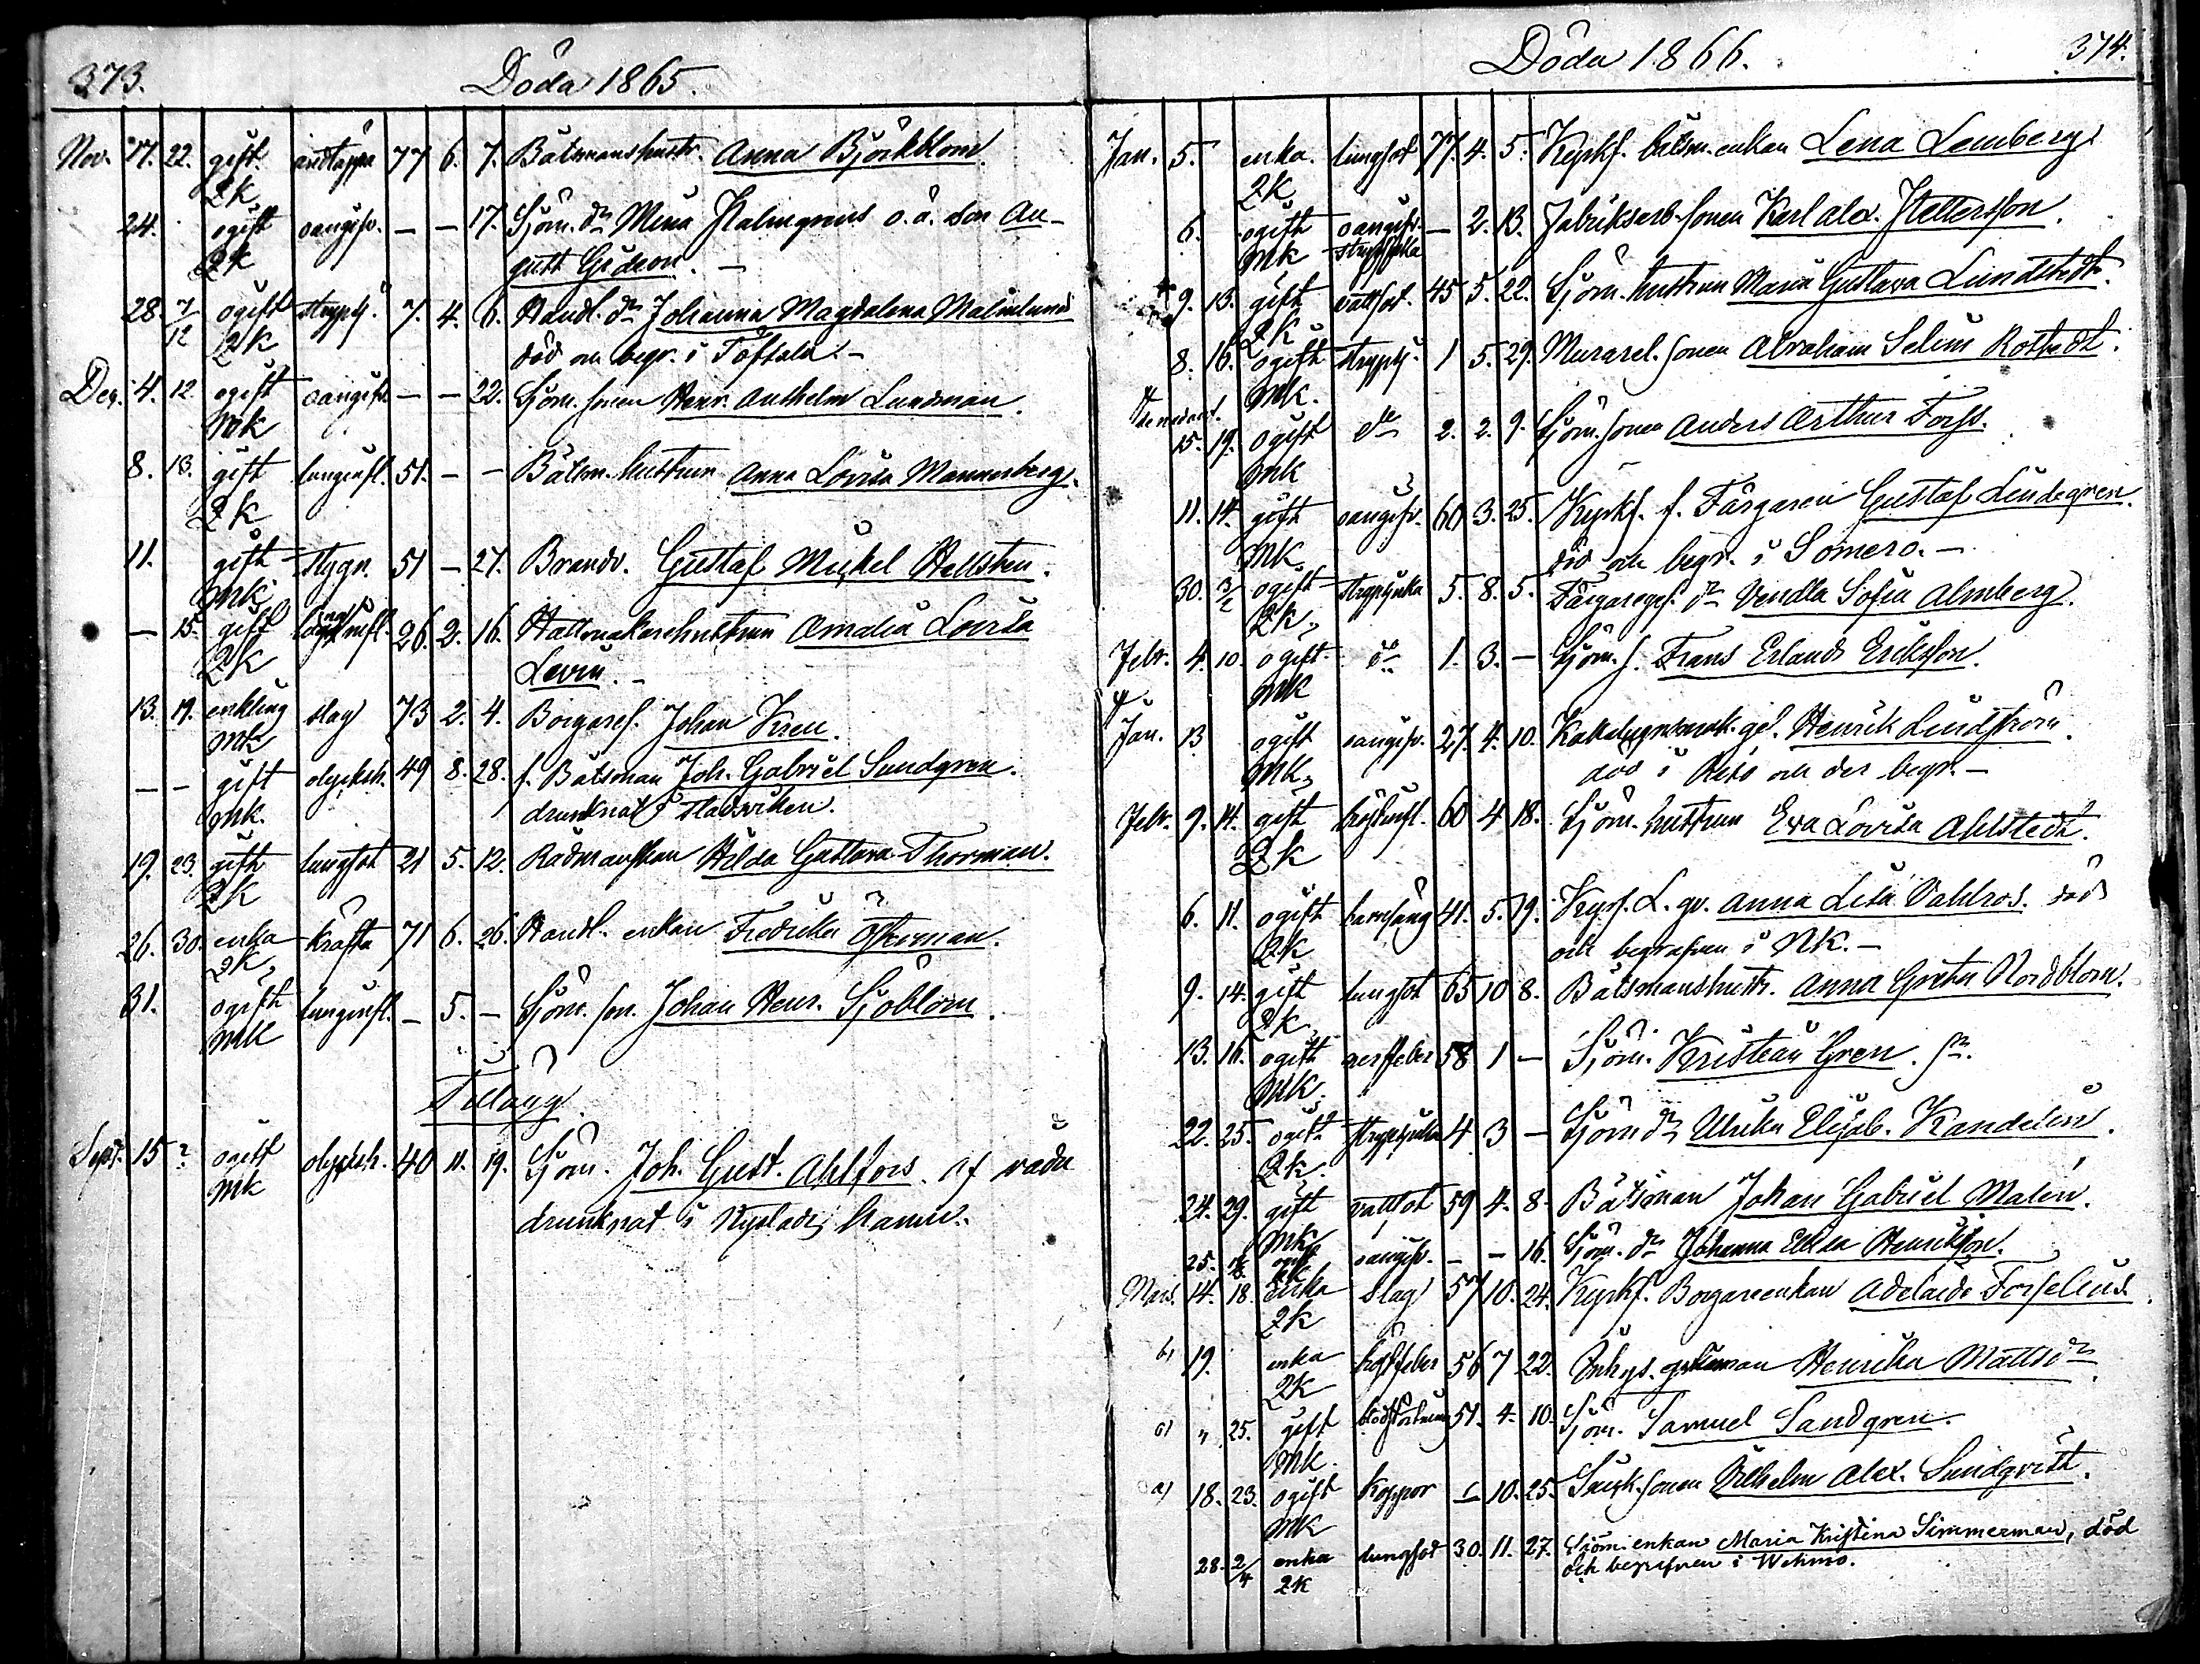 373.
Döda 1865.
Nov. 17. 22. gift andtäppa 77 6. 7. Båtsmanshustr. Anna Björkblom.
2K
24. ogift oangifv. — — 17. Sjöm. dr Mina Malmgrens o.ä. son Au-
2K gust Gideon. —
28. 7/12 ogift strypsj. 7. 4. 6. Handl. dr Johanna Magdalena Malmlund
2K död och begr. i Töfsala. —
Dec. 4. 12. ogift oangifv. — — 22. Sjöm. sonen Henr. Anthelm Lundman.
MK
8. 13. gift lunginfl. 51. — — Båtsm. hustrun Anna Lovisa Mannerberg.
2K
11. gift 51 — 27. Brandv. Gustaf Mickel Hellsten.
MK
— 15. gift 26. 2. 16. Hattmakarehustrun Amalia Lovisa
2K Levin. —
13. 19. enkling slag 73 2. 4. Borgaref. Johan Kren.
MK
— — gift olycksh. 49 8. 28. f. Båtsman Joh. Gabriel Sundgren.
MK. drunknat i Stadsviken.
19. 23. gift lungsot 21 5. 12. Rådmanskan Hilda Gustava Thorman.
2K
26. 30. enka kräfta 71 6. 26. Handl. enkan Fredrika Österman.
2K
31. ogift lunginfl. — 5. — Sjöm. son. Johan Henr. Sjöblom.
MK
Tillägg.
Sept. 15 ? ogift olycksh. 40 11. 19. Sjöm. Joh. Gust. Ahlfors. af våda
MK drunknat i Nystads hamn.
Döda 1866.
374.
Jan. 5. enka. lungsot 77. 4. 5. Kyrkf. båtsm. enkan Lena Lemberg.
2K
6. ogift oangifv. — 2. 13. Fabriksarb. sonen Karl Alex. Hellersson.
MK strypsjuka
9. 13. gift vattsot. 45 5. 22. Sjöm. hustrun Maria Gustava Lundstedt.
2K
8. 16. ogift strypsj. 1 5. 29. Murarel. sonen Abraham Selim Rostedt.
MK.
15. 19. ogift do 2. 2. 9. Sjöm. sonen Anders Arthur Forss.
MK
11. 14. gift oangifv. 60 3. 25. Kyrkf. f. Färgaren Gustaf Lindegren.
MK död och begr. i Somero. —
30. 3/2 ogift strypsjuka 5. 8. 5. Färgareges. dr Vendla Sofia Almberg.
2K
Febr. 4. 10. ogift do 1. 3. — Sjöm. s. Frans Erland Eriksson.
MK
Jan. 13 ogift oangifv. 27. 4. 10. Kakelugnsmak. gel. Henrik Lindström.
MK död i och der begr. —
Febr. 9. 14. gift bröstinfl. 60 4 18. Sjöm. hustrun Eva Lovisa Ahlstedt.
2K
6. 11. ogift barnsäng 41. 5. 19. Kyrkf. L. qv. Anna Lisa Vahlros. död
2K och begrafven i NK. —
9. 14. gift lungsot 65 10 8. Båtsmanshustr. Anna Greta Nordblom.
2K
13. 16. ogift nervfeber 58 1 — Sjöm. Kristian Gren. sn.
MK
22. 25. ogift strypsjuka 4 3 — Sjöm. dr Ulrika Elisab. Kandelin.
2K.
24. 29. gift vattsot 59 4. 8. Båtsman Johan Gabriel Malin.
MK
25. oangifv. — — 16. Sjöm. dr Johanna Henriksson.
2K
Mars. 14. 18. enka slag 57 10. 24. Kyrkf. Borgareenkan Adelaide Forselius.
2K
b) 19. enka bröstfeber 56 7 22. Inhys. Henrika Mattsdr
2K
c) " 25. gift blodstörtning 51. 4. 10. Sjöm. Samuel Sandgren.
MK.
a) 18. 23. ogift koppor 1 10. 25. sonen Vilhelm Alex. Sundqvist.
MK
28. 2/4 enka lungsot 30. 11. 27. Sjöm. enkan Maria Kristina Simmerman, död
2K och begrafven i Wehmo.